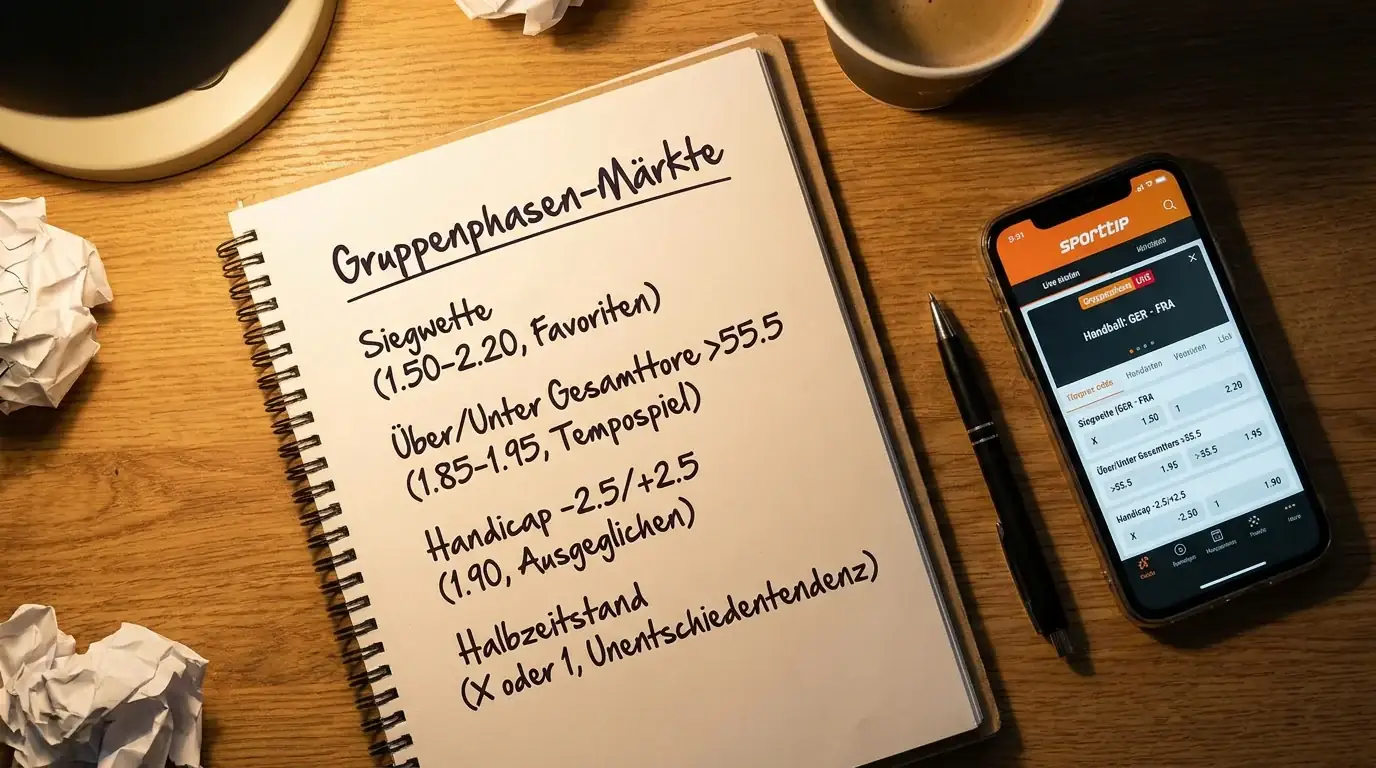 Gruppenphasen-Märkte
Siegwette
(1.50-2.20, Favoriten)
Über/Unter Gesamttore >55.5
(1.85-1.95, Tempospiel)
Handicap -2.5/+2.5
(1.90, Ausgeglichen)
Halbzeitstand
(X oder 1, Unentschiedentendenz)
sporttip
Handball: GER - FRA
Siegwette (GER - FRA
X 1.50 1 2.20
Über/Unter Gesamttors >55.5
>55.5 1.95 >55.5 1.95
Handicap -2.5/+2.5
X -2.50 1 1.90